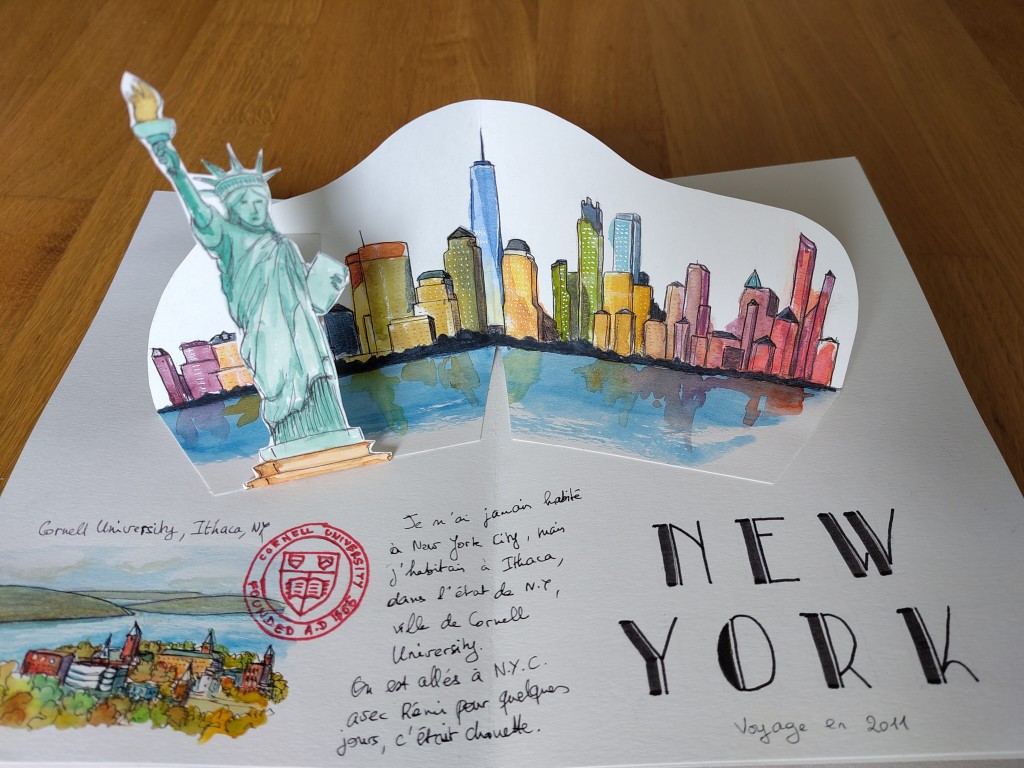 Cornell University, Ithaca, NY
CORNELL UNIVERSITY
FOUNDED A.D 1865
Je n'ai jamais habité
à New York City, mais
j'habitais à Ithaca,
dans l'état de N.Y,
ville de Cornell
University.
On est allés à N.Y.C.
avec Rémi pour quelques
jours, c'était chouette.
NEW
YORK
Voyage en 2011